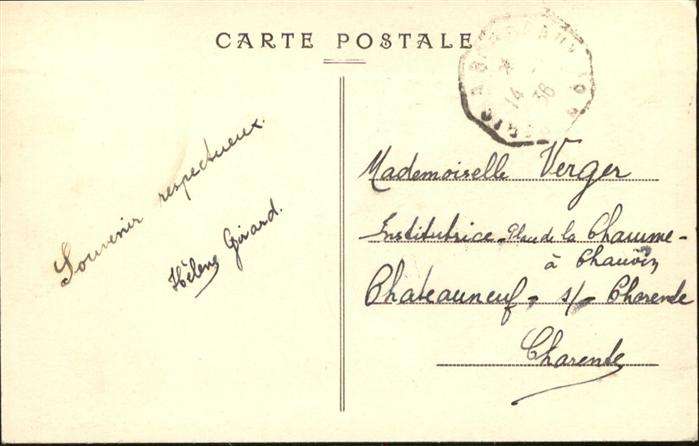 CARTE POSTALE
Souvenir respectueux.
Hélène Girard.
14
36
Mademoiselle Verger
Institutrice - Place de la Chaume -
à
Chateauneuf - s/- Charente
Charente